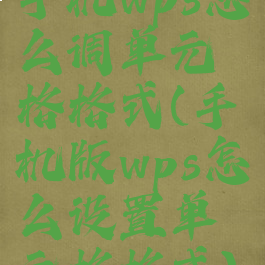 手机wps怎
么调单元
格格式(手
机版wps怎
么设置单
元格格式)